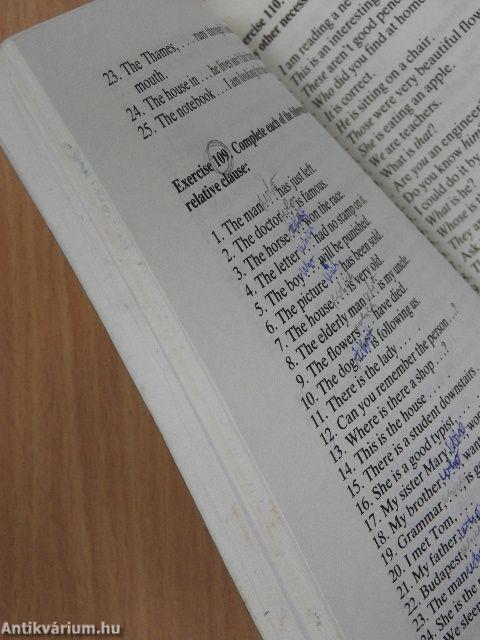 23. The Thames, . . . runs through
mouth.
24. The house in . . . he lives
25. The notebook . . . I am looking
Exercise 109 Complete each of the
relative clause:
1. The man . . . has just left.
2. The doctor is famous.
3. The horse won the race.
4. The letter had no stamp on it.
5. The boy who will be punished.
6. The picture has been sold.
7. The house . . . is very old.
8. The elderly man is my uncle.
9. The flowers have died.
10. The dog that is following us.
11. There is the lady . . .
12. Can you remember the person . . . ?
13. Where is there a shop . . . ?
14. This is the house . . .
15. There is a student downstairs
16. She is a good typist
17. My sister Mary
18. My brother
19. Grammar,
20. I met Tom,
21. My father,
22. Budapest
23. The man
24. She is the
We sleep
Exercise 110.
other neces
I am reading a ne
This is an interesting
These aren't good pen
Who did you find at home
It's correct.
He is sitting on a chair.
Those were very beautiful flow
She is eating an apple.
We are teachers.
What is that?
Are you an engineer
Do you know him
I could do it
What is he?
Whose is
They are
Antikvárium.hu